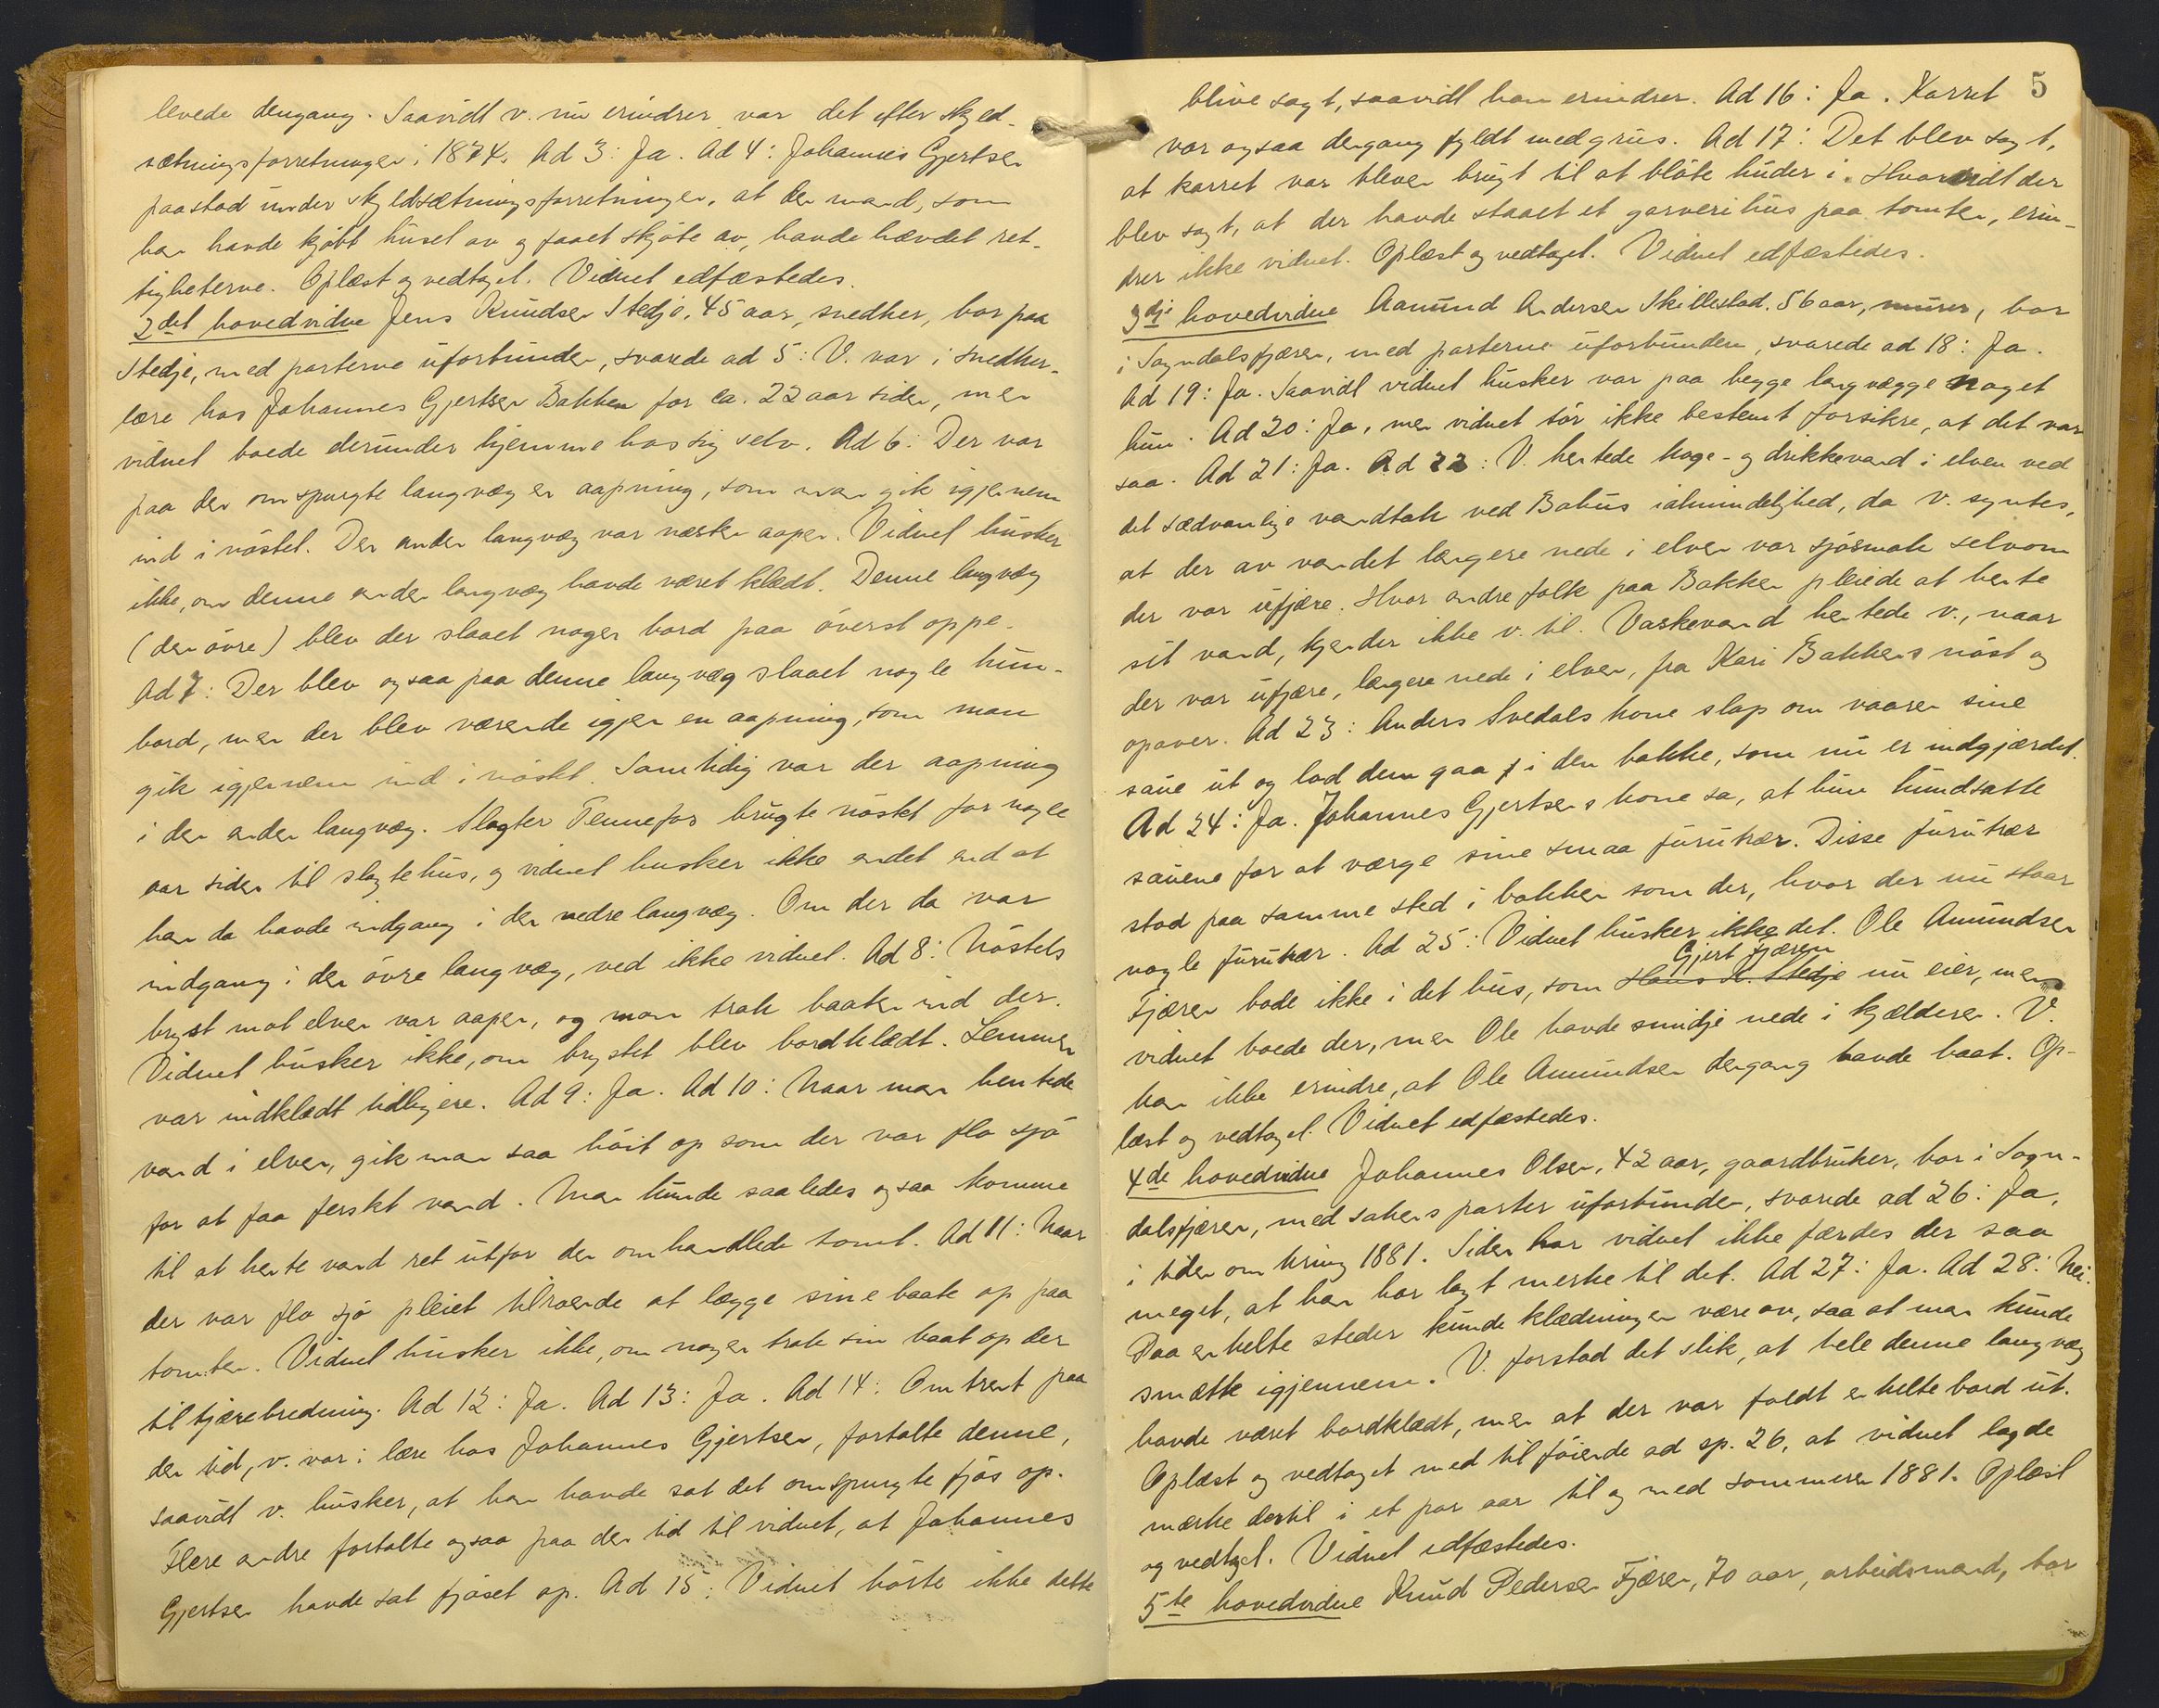 levede dengang. Saavidt v. nu erindrer var det efter skyld-
sætningsforretningen i 1874. Ad 3: Ja. Ad 4: Johannes Gjertsen
paastod under skyldsætningsforretningen, at den mand, som
han havde kjöbt huset av og faaet skjöte av, havde hævdet ret-
tigheterne. Oplæst og vedtaget. Vidnet edfæstedes.
2det hovedvidne Jens Knudsen Stedje, 45 aar, snedker, bor paa
Stedje, med parterne uforbunden, svarede ad 5: V. var i snedker-
lære hos Johannes Gjertsen Bakken for ca. 22 aar siden, men
vidnet boede derunder hjemme hos sig selv. Ad 6: Der var
paa den omspurgte langvæg en aapning, som man gik igjennem
ind i nöstet. Den anden langvæg var næsten aapen. Vidnet husker
ikke, om denne anden langvæg havde været klædt. Denne langvæg
(den övre) blev der slaaet nogen bord paa överst oppe.
Ad 7: Der blev ogsaa paa denne langvæg slaaet nogle hun-
bord, men der blev værende igjen en aapning, som man
gik igjennem ind i nöstet. Samtidig var der aapning
i den anden langvæg. Slagter Tennefos brugte nöstet for nogle
aar siden til slagtehus, og vidnet husker ikke andet end at
han da havde indgang i den nedre langvæg. Om der da var
indgang i den övre langvæg, ved ikke vidnet. Ad 8: Nöstets
bryst mot elven var aapen, og man trak baaten ind der.
Vidnet husker ikke, om brystet blev bordklædt. Lemmen
var indklædt tidligere. Ad 9: Ja. Ad 10: Naar man hentede
vand i elven, gik man saa höit op som der var flo sjö
for at faa ferskt vand. Man kunde saaledes ogsaa komme
til at hente vand ret utfor den omhandlede tomt. Ad 11: Naar
der var flo sjö pleiet tilroende at lægge sine baate op paa
tomten. Vidnet husker ikke, om nogen trak sin baat op der
til tjærebredning. Ad 12: Ja. Ad 13: Ja. Ad 14: Omtrent paa
den tid, v. var i lære hos Johannes Gjertsen, fortalte denne,
saavidt v. husker, at han havde sat det omspurgte fjös op.
Flere andre fortalte ogsaa paa den tid til vidnet, at Johannes
Gjertsen havde sat fjöset op. Ad 15: Vidnet hörte ikke dette
5
blive sagt, saavidt han erindrer. Ad 16: Ja. Karret
var ogsaa dengang fyldt med grus. Ad 17: Det blev sagt,
at karret var bleven brugt til at blöte huder i. Hvorvidt der
blev sagt, at der havde staaet et garverihus paa tomten, erin-
drer ikke vidnet. Oplæst og vedtaget. Vidnet edfæstedes.
3dje hovedvidne Aamund Andersen Skillestad, 56 aar, murer, bor
i Sogndalsfjæren, med parterne uforbunden, svarede ad 18: Ja.
Ad 19: Ja. Saavidt vidnet husker var paa begge langvægge noget
hun. Ad 20: Ja, men vidnet tör ikke bestemt forsikre, at det var
saa. Ad 21: Ja. Ad 22: V. hentede koge- og drikkevand i elven ved
det sædvanlige vandtak ved Bahus ialmindelighed, da v. syntes,
at der av vandet længere nede i elven var sjösmak selvom
der var ufjære. Hvor andre folk paa Bakken pleiede at hente
sit vand, kjender ikke v. til. Vaskevand hentede v., naar
der var ufjære, længere nede i elven, fra Kari Bakkens nöst og
opover. Ad 23: Anders Svedals kone slap om vaaren sine
saue ut og lod dem gaa i den bakke, som nu er indgjærdet.
Ad 24: Ja. Johannes Gjertsens kone sa, at hun hundsatte
sauene for at værge sine smaa furutrær. Disse furutrær
stod paa samme sted i bakken som der, hvor der nu staar
nogle furutrær. Ad 25: Vidnet husker ikke det. Ole Amundsen
Gjert Fjæren
Fjæren bode ikke i det hus, som Hans H. Stedje nu eier, men
vidnet boede der, men Ole havde smidje nede i kjælderen. V.
kan ikke erindre, at Ole Amundsen dengang havde baat. Op-
læst og vedtaget. Vidnet edfæstedes.
4de hovedvidne Johannes Olsen, 42 aar, gaardbruker, bor i Sogn-
dalsfjæren, med sakens parter uforbunden, svarede ad 26: Ja,
i tiden omkring 1881. Siden har vidnet ikke færdes der saa
meget, at han har lagt merke til det. Ad 27: Ja. Ad 28: Nei.
Paa enkelte steder kunde klædningen være av, saa at man kunde
smætte igjennem. V. forstod det slik, at hele denne langvæg
havde været bordklædt, men at der var faldt enkelte bord ut.
Oplæst og vedtaget med tilföiende ad sp. 26, at vidnet lagde
mærke dertil i et par aar til og med sommeren 1881. Oplæst
og vedtaget. Vidnet edfæstedes.
5te hovedvidne Knud Pedersen Fjæren, 70 aar, arbeidsmand, bor